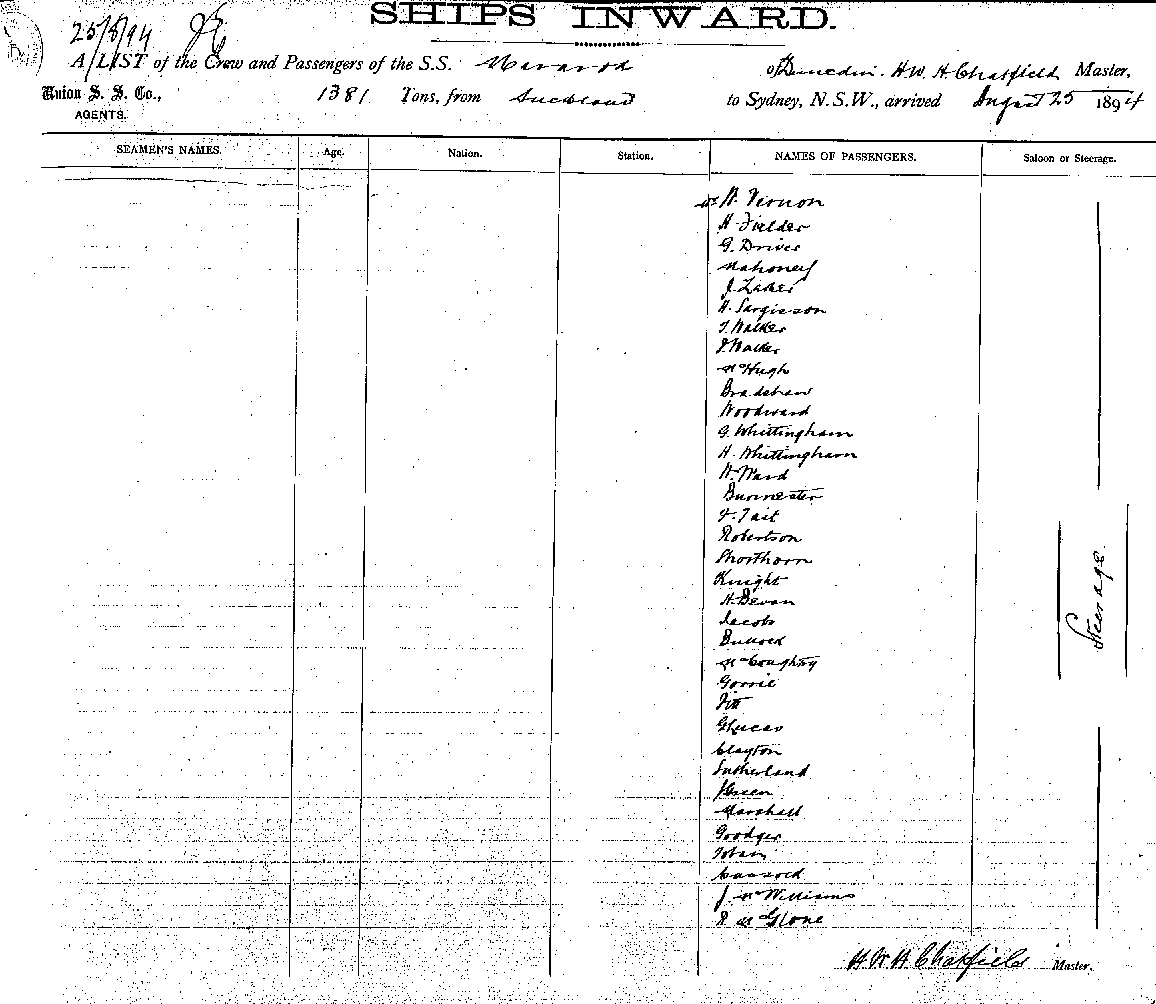 SHIPS INWARD.
25/8/94
A LIST of the Crew and Passengers of the S.S. Wararoa of Dunedin. H W H Chatfield Master,
Union S. S. Co., 1381 Tons, from Auckland to Sydney, N.S.W., arrived August 25 1894
AGENTS.
SEAMEN'S NAMES. Age. Nation. Station. NAMES OF PASSENGERS. Saloon or Steerage.
Mr W. Vernon
H. Fielder
G. Driver
Mahoney
J. Laker
H. Sargisson
T. Walker
J. Walker
McHugh
Bradshaw
Woodward
G. Whittingham
H. Whittingham
W. Ward
Burmester
F. Tait
Robertson
Shorthorn
Knight
H. Bevan
Jacobs
Bullock
McCoughty
Gorrie
Fitt
G Lucas
Clayton
Sutherland
Green
Marshall
Goodger
Tobin
Cussock
J. McWilliams
R McGlone
Steerage.
H W H Chatfield Master.